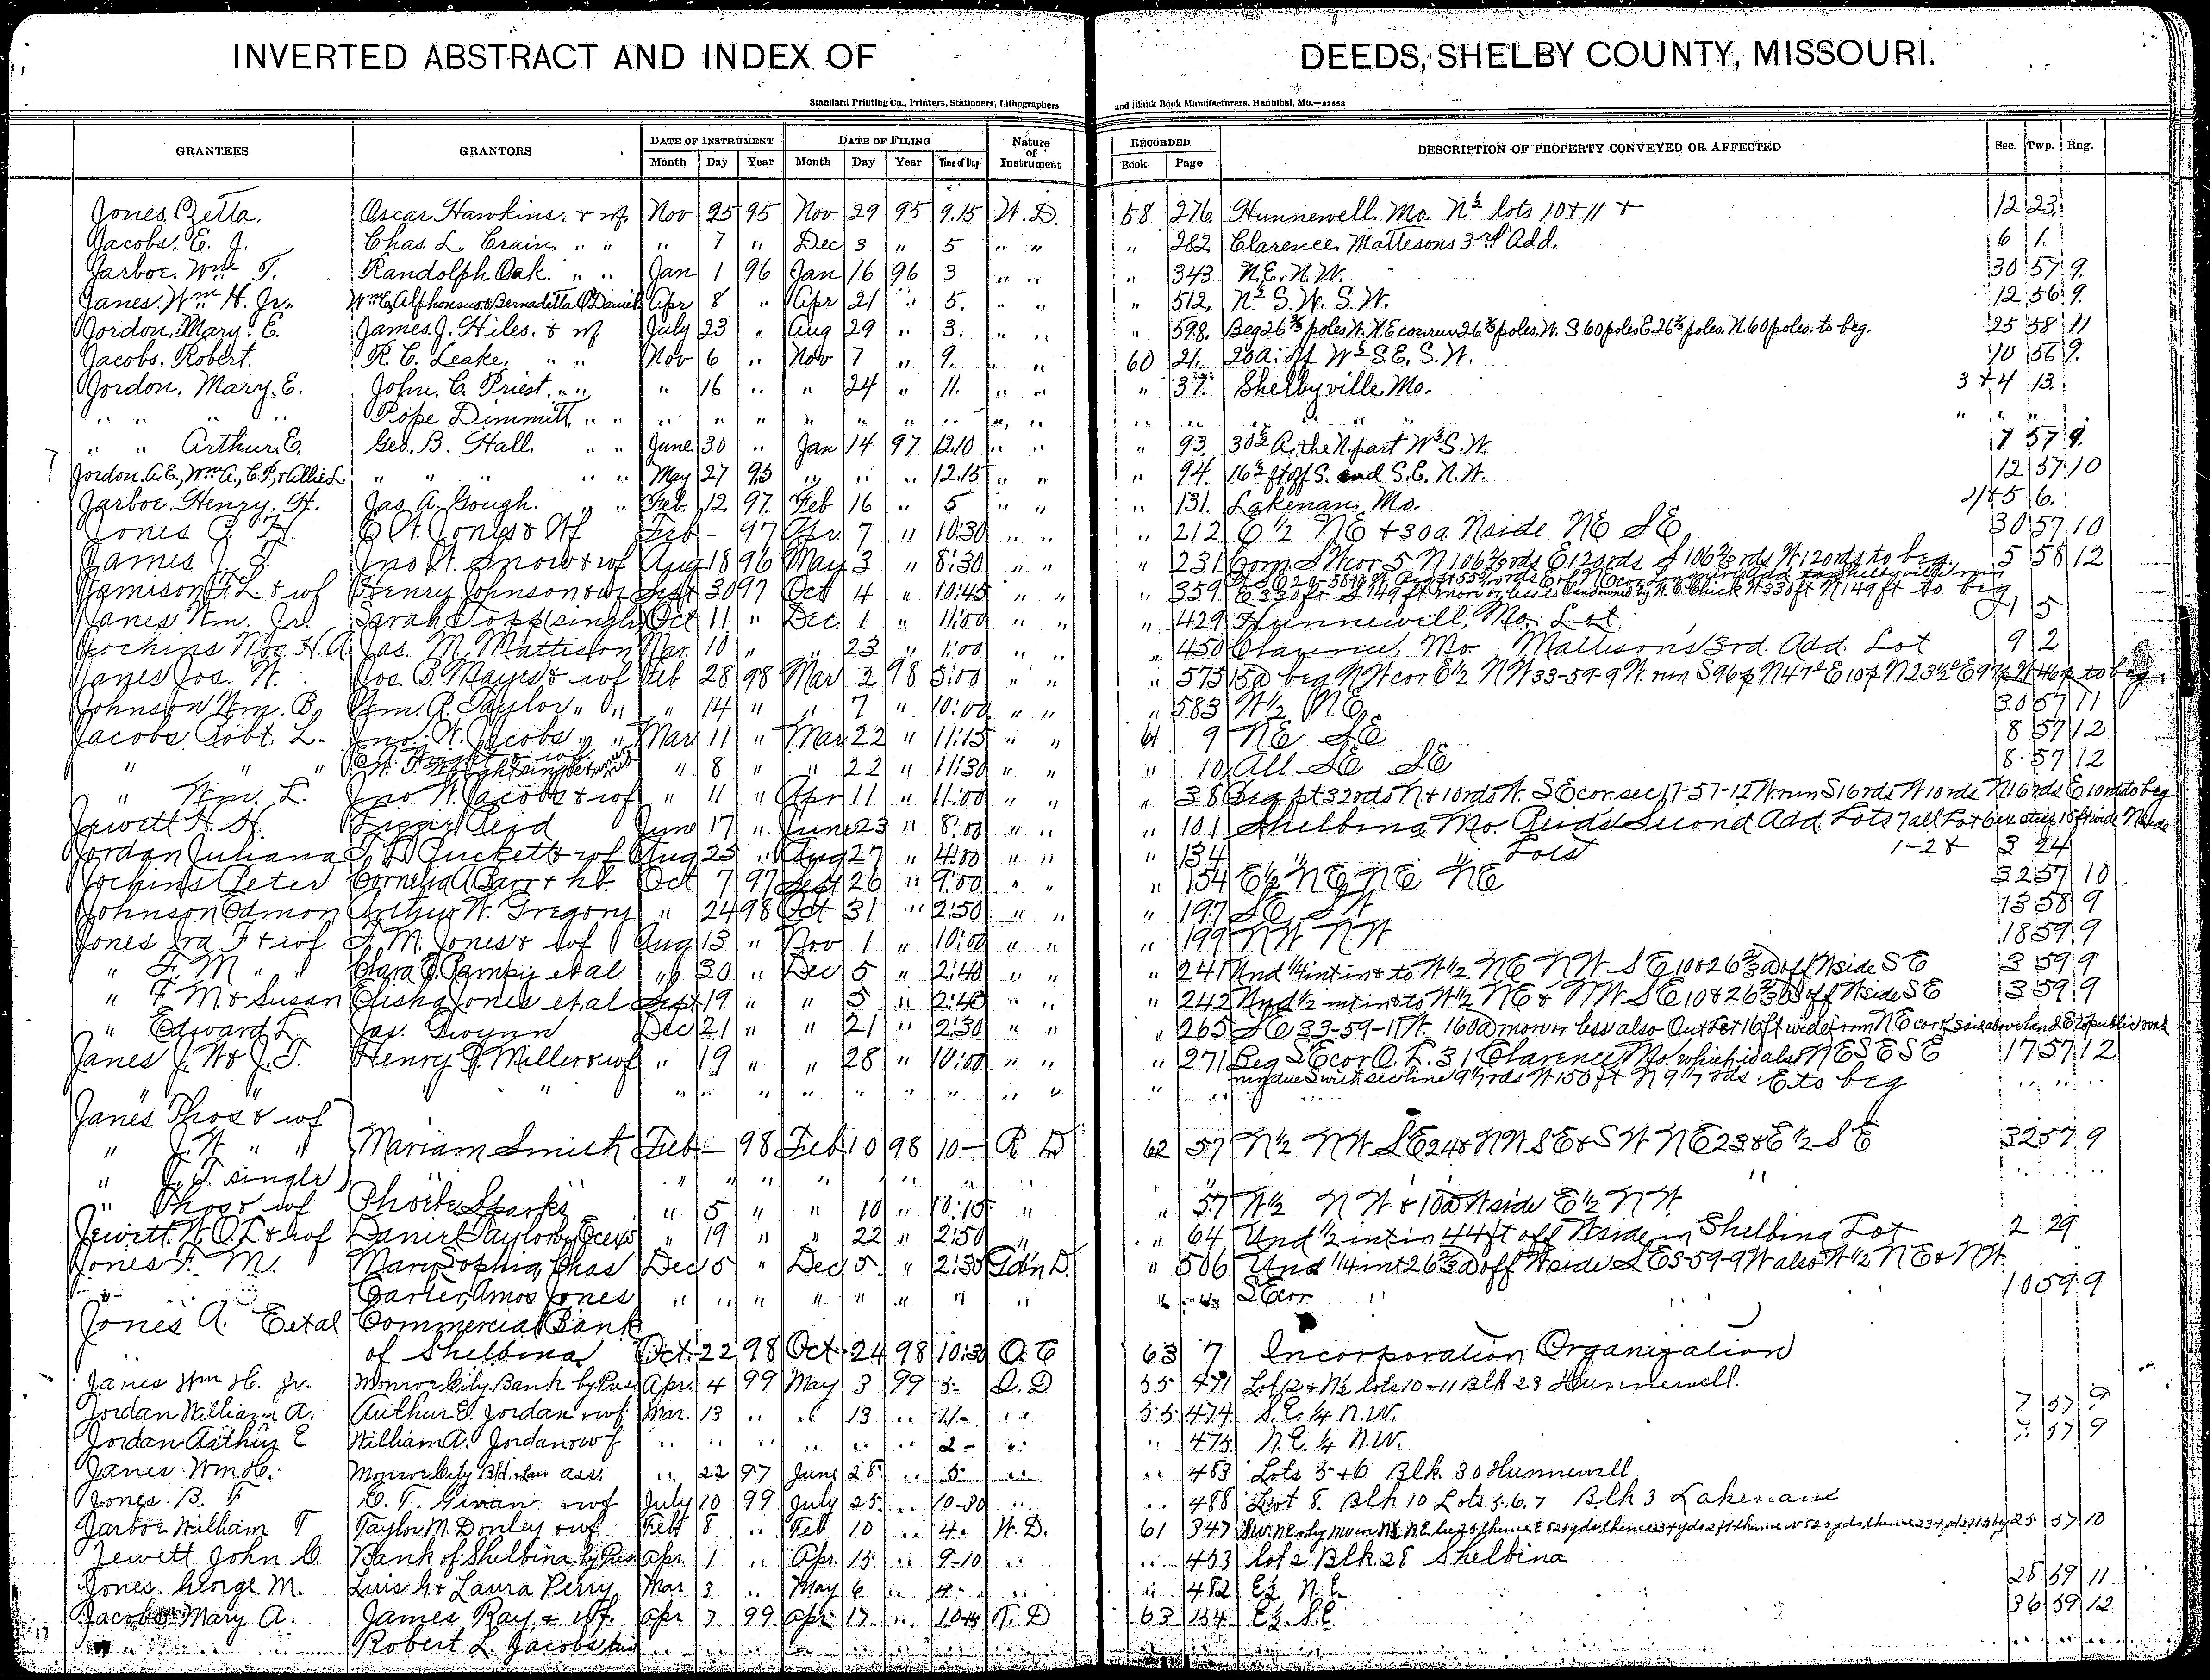 INVERTED ABSTRACT AND INDEX OF DEEDS, SHELBY COUNTY, MISSOURI.
Standard Printing Co., Printers, Stationers, Lithographers and Blank Book Manufacturers, Hannibal, Mo.—82658
GRANTEES GRANTORS DATE OF INSTRUMENT DATE OF FILING Nature of Instrument RECORDED DESCRIPTION OF PROPERTY CONVEYED OR AFFECTED Sec. Twp. Rng.
Month Day Year Month Day Year Time of Day Book Page
Jones, Zetta. Oscar Hawkins. & wf. Nov 25 95 Nov 29 95 9.15 W.D. 58 276 Hunnewell. Mo. N½ lots 10 & 11 & 12 23
Jacobs. E. J. Chas. L. Crain. " " " 7 " Dec 3 " 5 " " " 282 Clarence. Mattesons 3rd Add. 6 1.
Jarboe. Wm T. Randolph Oak. " " Jan 1 96 Jan 16 96 3 " " " 343 N.E. N.W. 30 57 9.
Janes. Wm H. Jr. Wm E, Alphonsus & Bernadetta O'Daniel Apr 8 " Apr 21 " 5. " " " 512. N½ S.W. S.W. 12 56 9.
Jordon. Mary. E. James. J. Hiles. & wf July 23 " Aug 29 " 3. " " " 598. Beg 26⅔ poles W. N.E cor run 26⅔ poles. W. S 60 poles E 26⅔ poles. N. 60 poles. to beg. 25 58 11
Jacobs. Robert. R. C. Leake. " " Nov 6 " Nov 7 " 9. " " 60 21. 20 a. off W½ S.E. S.W. 10 56 9.
Jordon. Mary. E. John. C. Priest. " " " 16 " " 24 " 11. " " " 37. Shelbyville Mo. 3 & 4 13.
" " " " Pope Dimmitt " " " " " " " " " " " " " " " "
" " Arthur. E. Geo. B. Hall. " " June 30 " Jan 14 97 12.10 " " " 93 30½ A. the N. part W½ S.W. 7 57 9.
Jordon. A.E., Wm A., C.P., & Allie L. " " " " " May 27 95 " " " 12.15 " " " 94. 16½ ft off S. end S.E. N.W. 12 57 10
Jarboe. Henry. H. Jas. A. Gough. " " Feb. 12 97. Feb 16 " 5 " " " 131. Lakenan. Mo. 4 & 5 6.
Jones & Wf Feb - 97 Apr 7 " 10:30 " " " 212 E ½ NE & 30a N side NE SE 30 57 10
James J. T. Jno W. Snow & wf Aug 18 96 May 3 " 8:30 " " " 231 Com S W cor 5 N 106⅔ rds E 120 rds S 106⅔ rds W 120 rds to beg. 5 58 12
Jamison F. L & wf Henry Johnson & wf Sept 30 97 Oct 4 " 10:45 " " " 359 E 330 ft S 149 ft more or less to land owned by W. C. Chick W 330 ft N 149 ft to beg
Janes Wm. Jr. Sarah Topp (single) Oct 11 " Dec. 1 " 11:00 " " " 429 Hunnewill, Mo. Lot 1 5
Jochins H. A. Jas. M. Mattison Mar. 10 " " 23 " 1:00 " " " 450 Clarence, Mo Mattison's 3rd. Add. Lot 9 2
Janes Jos. W. Jos. B. Mayes & wf Feb 28 98 Mar 2 98 5:00 " " " 575 15a beg NW cor E½ NW 33-59-9 W. run S 96p N 47° E 10p N 23½° E 97p W 46p to beg
Johnson Wm. B. Wm. R. Taylor " " " 14 " " 7 " 10:00 " " " 583 W½ NE 30 57 11
Jacobs Robt. L. Jno. W. Jacobs " " Mar 11 " Mar 22 " 11:15 " " 61 9 NE SE 8 57 12
" " " " 8 " " 22 " 11:30 " " " 10 All SE SE 8 57 12
" Wm. L. Jno. W. Jacobs & wf " 11 " Apr 11 " 11:00 " " " 38 Beg pt 32 rds N & 10 rds W. SE cor sec 17-57-12 W. run S 16 rds W 10 rds N 16 rds E 10 rds to beg
Jewett H. H. Reid June 17 " June 23 " 8:00 " " " 101 Shelbina, Mo. Reids Second Add. Lots 7 all
Jordan Juliana T. L. Puckett & wf Aug 25 " Aug 27 " 4:00 " " " 134 " " Lots 1-2 & 3 24
Jochins Peter Cornelia A Barr & hb. Oct 7 97 Sept 26 " 9:00 " " " 154 E½ NE NE NE 32 57 10
Johnson Edmon Arthur W. Gregory " 24 98 Oct 31 " 2:50 " " " 197 SE SW 13 58 9
Jones Ira F & wf F. M. Jones & wf Aug 13 " Nov 1 " 10:00 " " " 199 NW NW 18 59 9
" F. M " " Clara J. et al " 30 " Dec 5 " 2:40 " " " 241 Und ¼ int in & to W½ NE NW SE 10 & 26⅔ a off W side SE 3 59 9
" F. M & Susan Elisha Jones et al Sept 19 " " 5 " 2:45 " " " 242 Und ½ int in & to W½ NE & NW SE 10 & 26⅔ a off W side SE 3 59 9
" Edward L. Jas. Gwynn Dec 21 " " 21 " 2:30 " " " 265 SE 33-59-11 W. 160 a more or less also Out Let 16 ft wide from NE cor of said above land E to public road
Janes J. W & J. T. Henry J. Miller & wf " 19 " " 28 " 10:00 " " " 271 Beg SE cor O. L. 31 Clarence Mo which is also NE SE SE 17 57 12
" " " " " " " " " " " " run due S with sec line 9 1/7 rds W 150 ft N 9 1/7 rds. E to beg " " "
Janes Thos & wf
" J. W " " Mariam Smith Feb - 98 Feb 10 98 10- R D 62 57 N½ NW SE 24 & NW SE & SW NE 23 & E½ SE 32 57 9
" J. T. single " " " " " " " " " " " "
" Thos & wf Phoebe Sparks " 5 " " 10 " 10:15 " " 57 W½ NW & 10a W side E½ NW
Jewett W. O. L & wf Daniel Taylor by Excr " 19 " " 22 " 2:50 " " 64 Und ½ int in 44 ft off W side in Shelbina Lot 2 29
Jones F. M. Mary, Sophia, Chas Dec 5 " Dec 5 " 2:35 Gdn D. " 506 Und ¼ int 26⅔ a off W side SE 3-59-9 W also W½ NE & NW
Carter, Amos Jones " " " " " " " " " " SE cor " 10 59 9
Jones A. E et al Commercial Bank
of Shelbina Oct. 22 98 Oct. 24 98 10:30 O. C 63 7 Incorporation Organization
Janes Wm H. Jr. Monroe City Bank by Pres Apr. 4 99 May 3 99 5- Q. D 55 471 Lot 12 & N½ lots 10 & 11 Blk 23 Hunnewell.
Jordan William A. Arthur E. Jordan & wf Mar. 13 " " 13 " 11- " 55 474 S. E. ¼ N.W. 7 57 9
Jordan Arthur E William A. Jordan & wf " " " " " " 2- " " 475 N. E. ¼ N.W. 7 57 9
Janes Wm H. Monroe City Bld. & Loan ass. " 22 97 June 28 " 5- " " 483 Lots 5 & 6 Blk. 30 Hunnewell
Jones B. F. & wf July 10 99 July 25 " 10-30 " " 488 Lot 8. Blk 10 Lots 5. 6. 7 Blk 3 Lakenan
Jarboe William T Taylor M. Donley & wf Feb 8 " Feb 10 " 4- W. D. 61 347 25 57 10
Jewett John C. Bank of Shelbina by Pres Apr. 1 " Apr. 15 " 9-10 " " 453 lot 2 Blk. 28 Shelbina
Jones. George M. & Laura Perry Mar 3 " May 6 " 4- " " 482 E½ N.E. 28 59 11
Jacobs Mary A. James Ray & wf. Apr 7 99 Apr 17 " 10 45 T. D 63 134 E½ S.E 36 59 12
Robert L. Jacobs